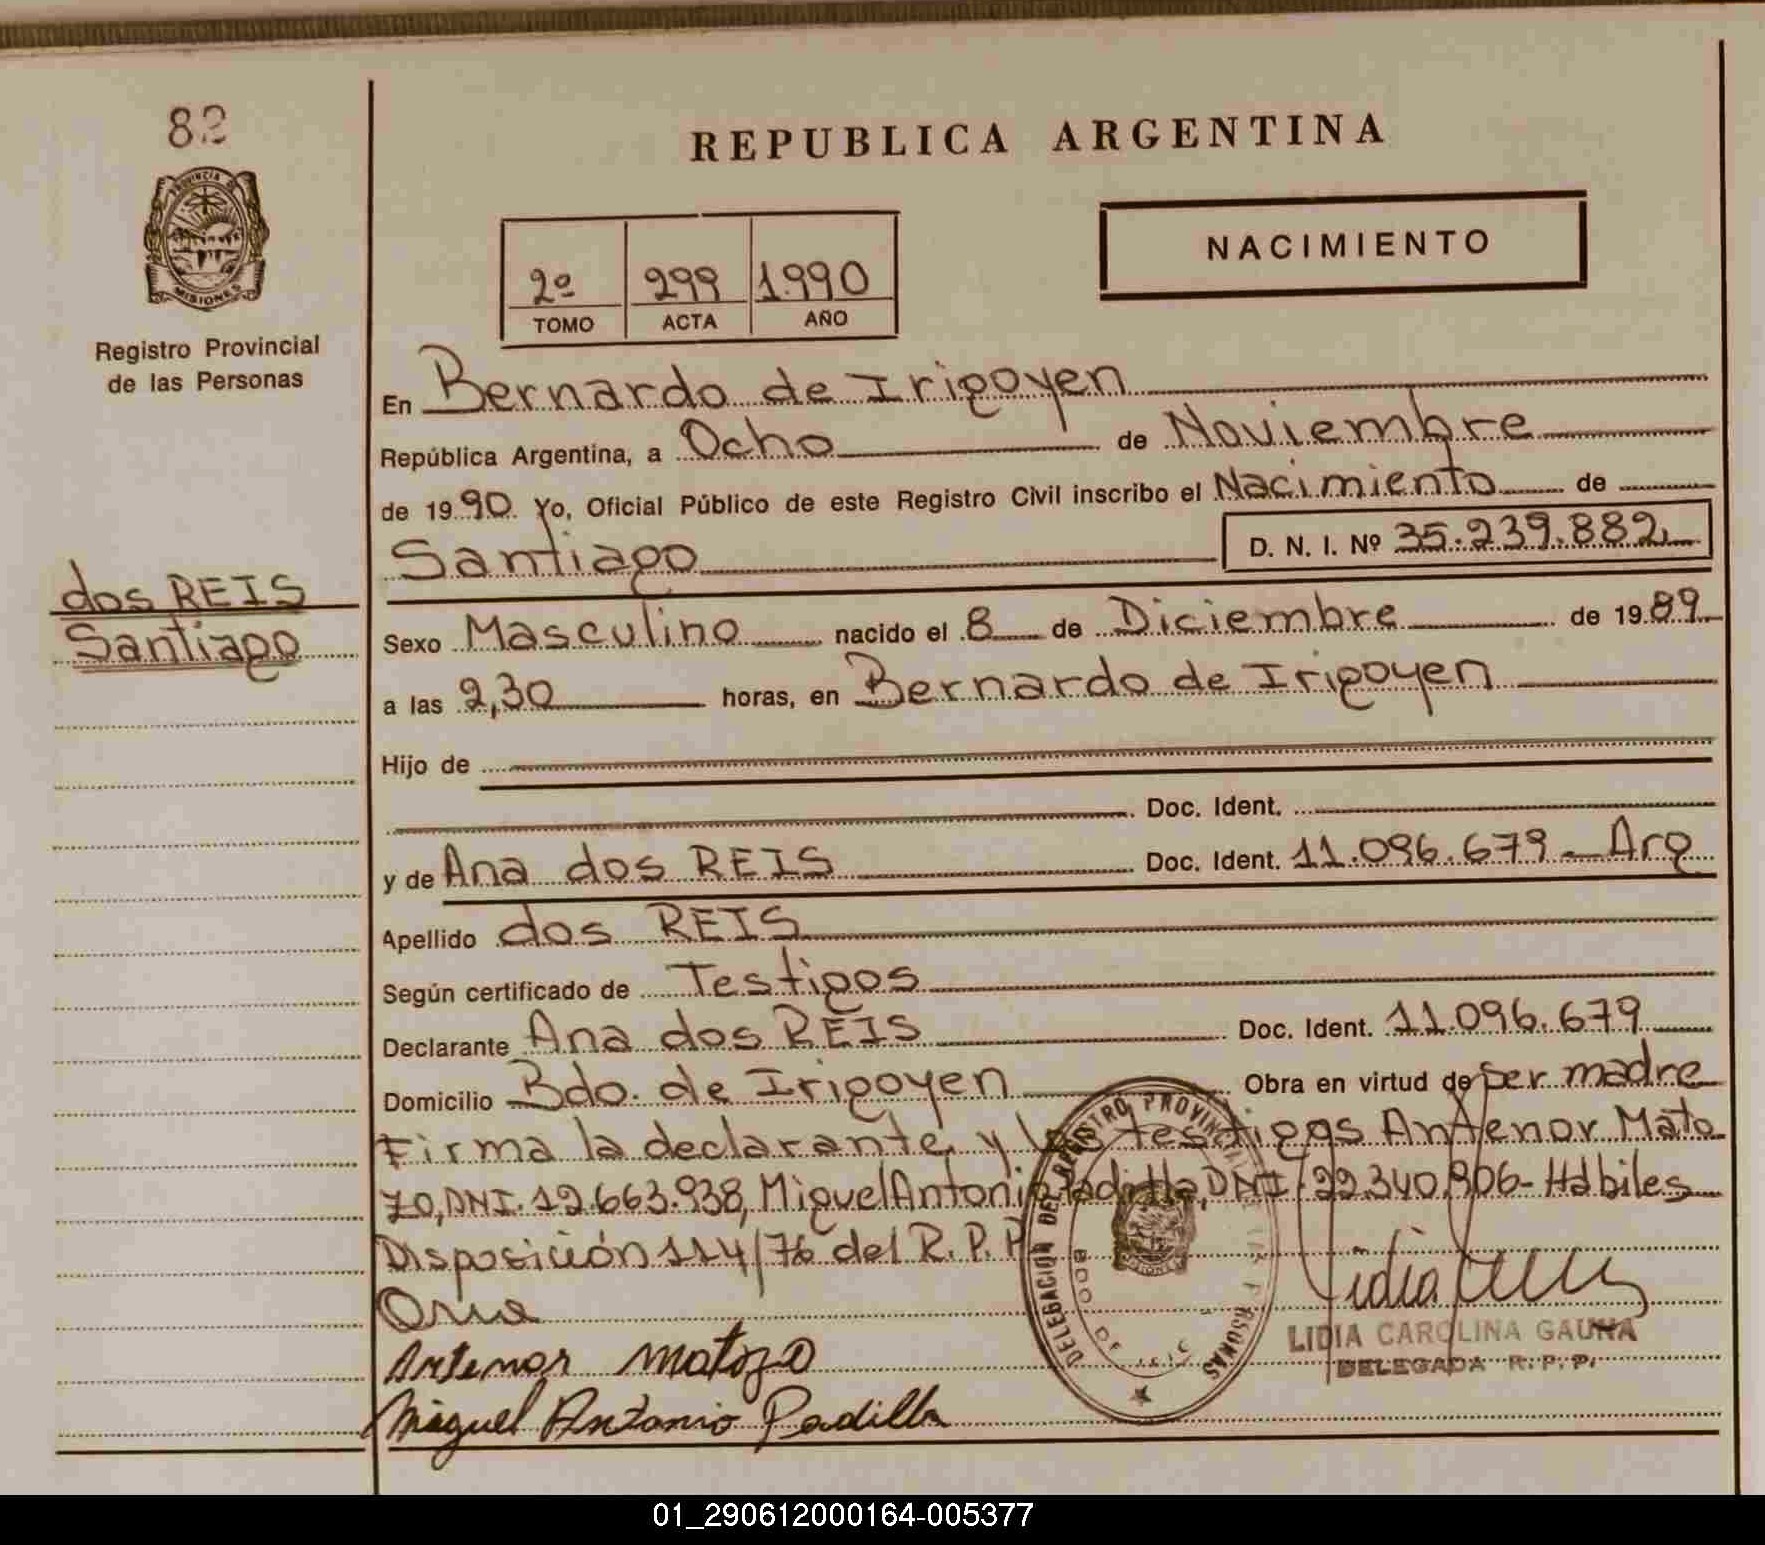 82
PROVINCIA DE
MISIONES
Registro Provincial
de las Personas
dos REIS
Santiago
REPUBLICA ARGENTINA
NACIMIENTO
2º 299 1.990
TOMO ACTA AÑO
En Bernardo de Irigoyen
República Argentina, a Ocho de Noviembre
de 1990. Yo, Oficial Público de este Registro Civil inscribo el Nacimiento de
Santiago D. N. I. Nº 35.239.882
Sexo Masculino nacido el 8 de Diciembre de 1989
a las 2,30 horas, en Bernardo de Irigoyen
Hijo de
Doc. Ident.
y de Ana dos REIS Doc. Ident. 11.096.679 - Arg
Apellido dos REIS
Según certificado de Testigos
Declarante Ana dos REIS Doc. Ident. 11.096.679
Domicilio Bdo. de Irigoyen Obra en virtud de ser madre
Firma la declarante y los testigos Antenor Mato
zo, DNI. 12.663.938, Miguel Antonio Padilla, DNI 22.340.906 - Hábiles
Disposición 114/76 del R. P. P
Antenor Matozo
Miguel Antonio Padilla
DELEGACION DEL REGISTRO PROVINCIAL DE LAS PERSONAS
Lidia
LIDIA CAROLINA GAUNA
DELEGADA R. P. P.
01_290612000164-005377